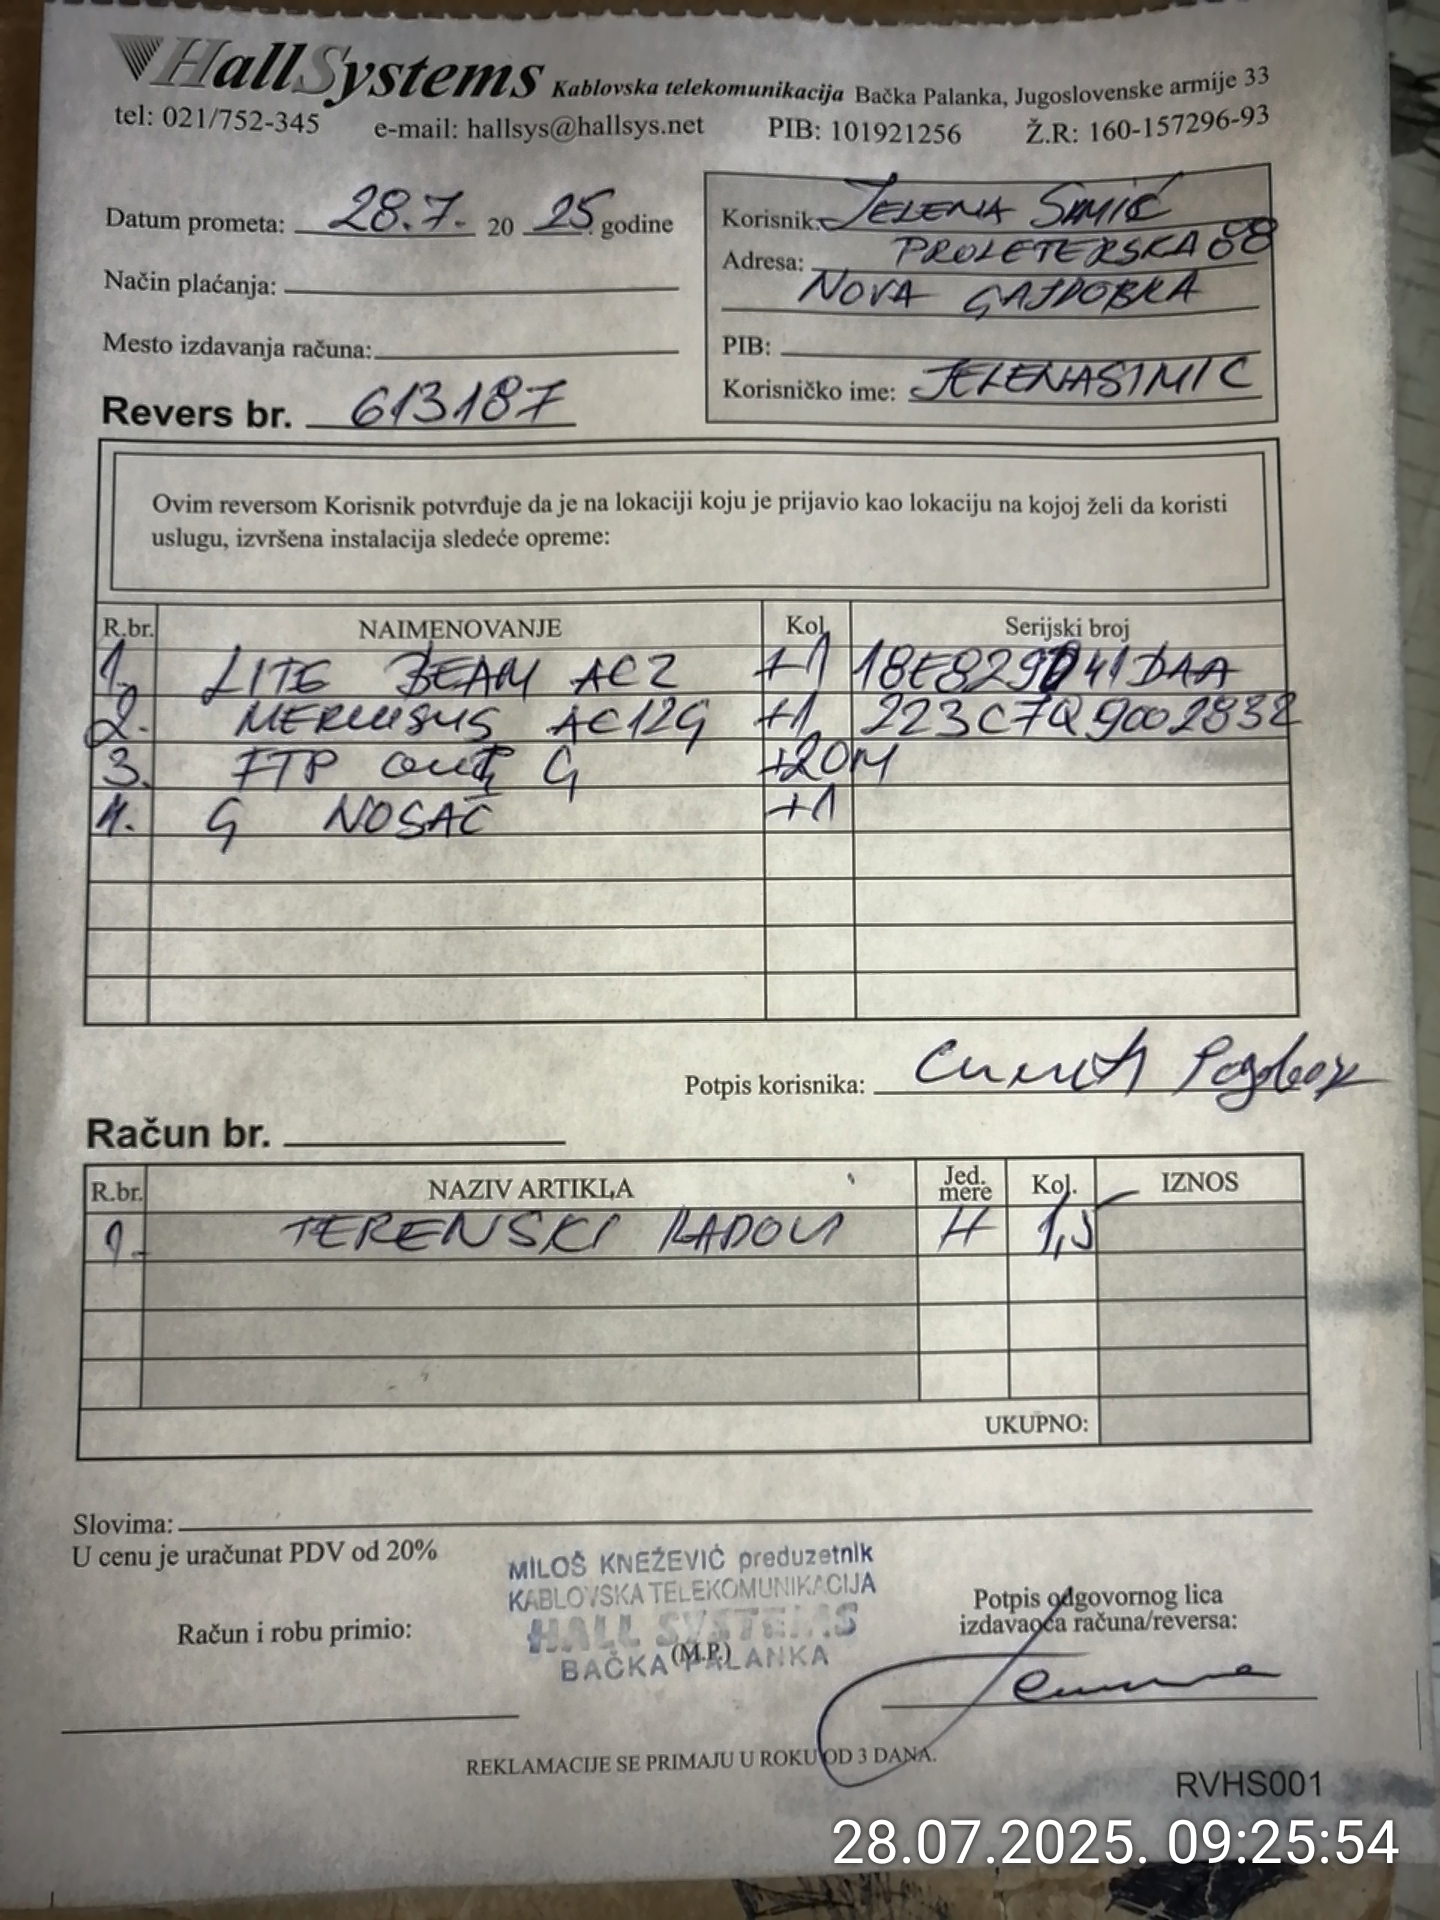 HallSystems Kablovska telekomunikacija Bačka Palanka, Jugoslovenske armije 33
tel: 021/752-345 e-mail: hallsys@hallsys.net PIB: 101921256 Ž.R: 160-157296-93
Datum prometa: 28.7. 20 25. godine
Način plaćanja:
Mesto izdavanja računa:
Revers br. 613187
Korisnik: JELENA SIMIĆ
Adresa: PROLETERSKA 88
NOVA GAJDOBRA
PIB:
Korisničko ime: JELENASIMIC
Ovim reversom Korisnik potvrđuje da je na lokaciji koju je prijavio kao lokaciju na kojoj želi da koristi
uslugu, izvršena instalacija sledeće opreme:
R.br. NAIMENOVANJE Kol. Serijski broj
1. LITE BEAM AC2 +1 18E829D41DAA
2. MERCUSYS AC12G +1 223C7Q9002832
3. FTP OUT G +20M
4. G NOSAČ +1
Potpis korisnika:
Račun br.
R.br. NAZIV ARTIKLA Jed. mere Kol. IZNOS
1. TERENSKI RADOVI H 1,5
UKUPNO:
Slovima:
U cenu je uračunat PDV od 20%
MILOŠ KNEŽEVIĆ preduzetnik
KABLOVSKA TELEKOMUNIKACIJA
HALL SYSTEMS
(M.P.)
BAČKA PALANKA
Račun i robu primio:
Potpis odgovornog lica
izdavaoca računa/reversa:
REKLAMACIJE SE PRIMAJU U ROKU OD 3 DANA.
RVHS001
28.07.2025. 09:25:54